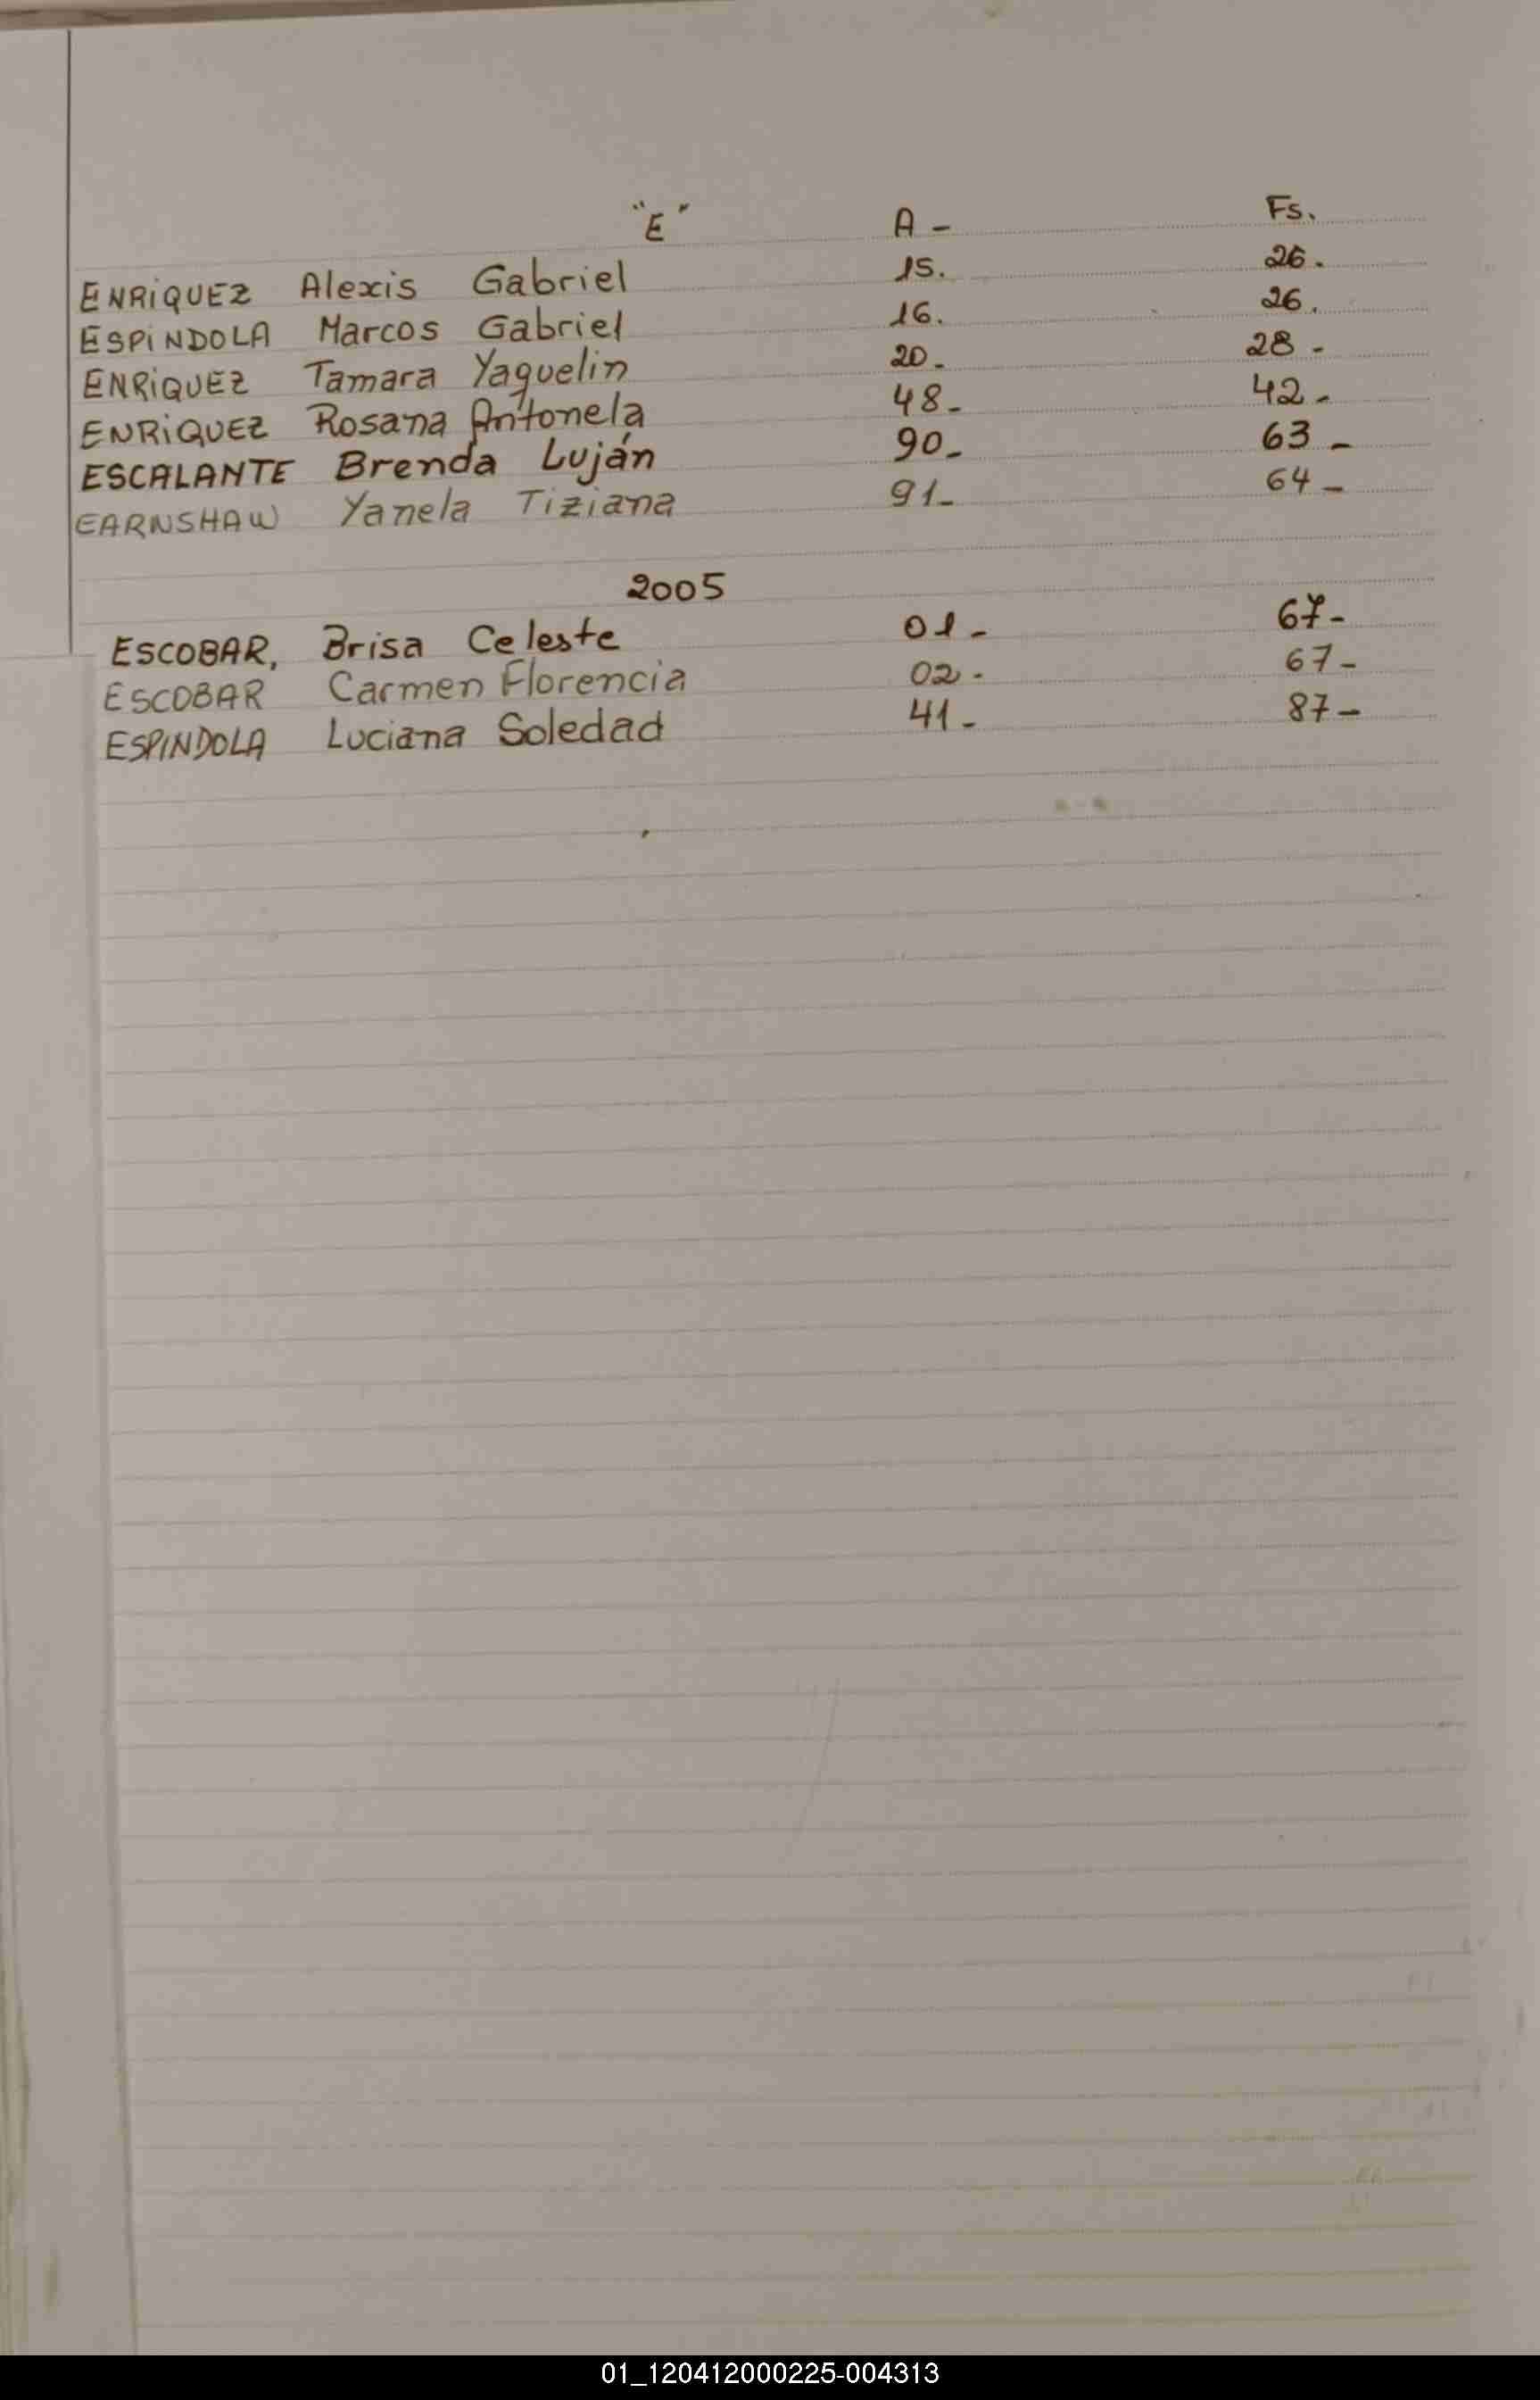 "E" A - Fs.
ENRiQUEZ Alexis Gabriel 15. 26.
ESPiNDOLA Marcos Gabriel 16. 26.
ENRiQUEZ Tamara Yaquelin 20- 28-
ENRiQUEZ Rosana Antonela 48- 42-
ESCALANTE Brenda Luján 90- 63-
EARNSHAW Yanela Tiziana 91- 64-
2005
ESCOBAR, Brisa Celeste 01- 67-
ESCOBAR Carmen Florencia 02- 67-
ESPINDOLA Luciana Soledad 41- 87-
01_120412000225-004313